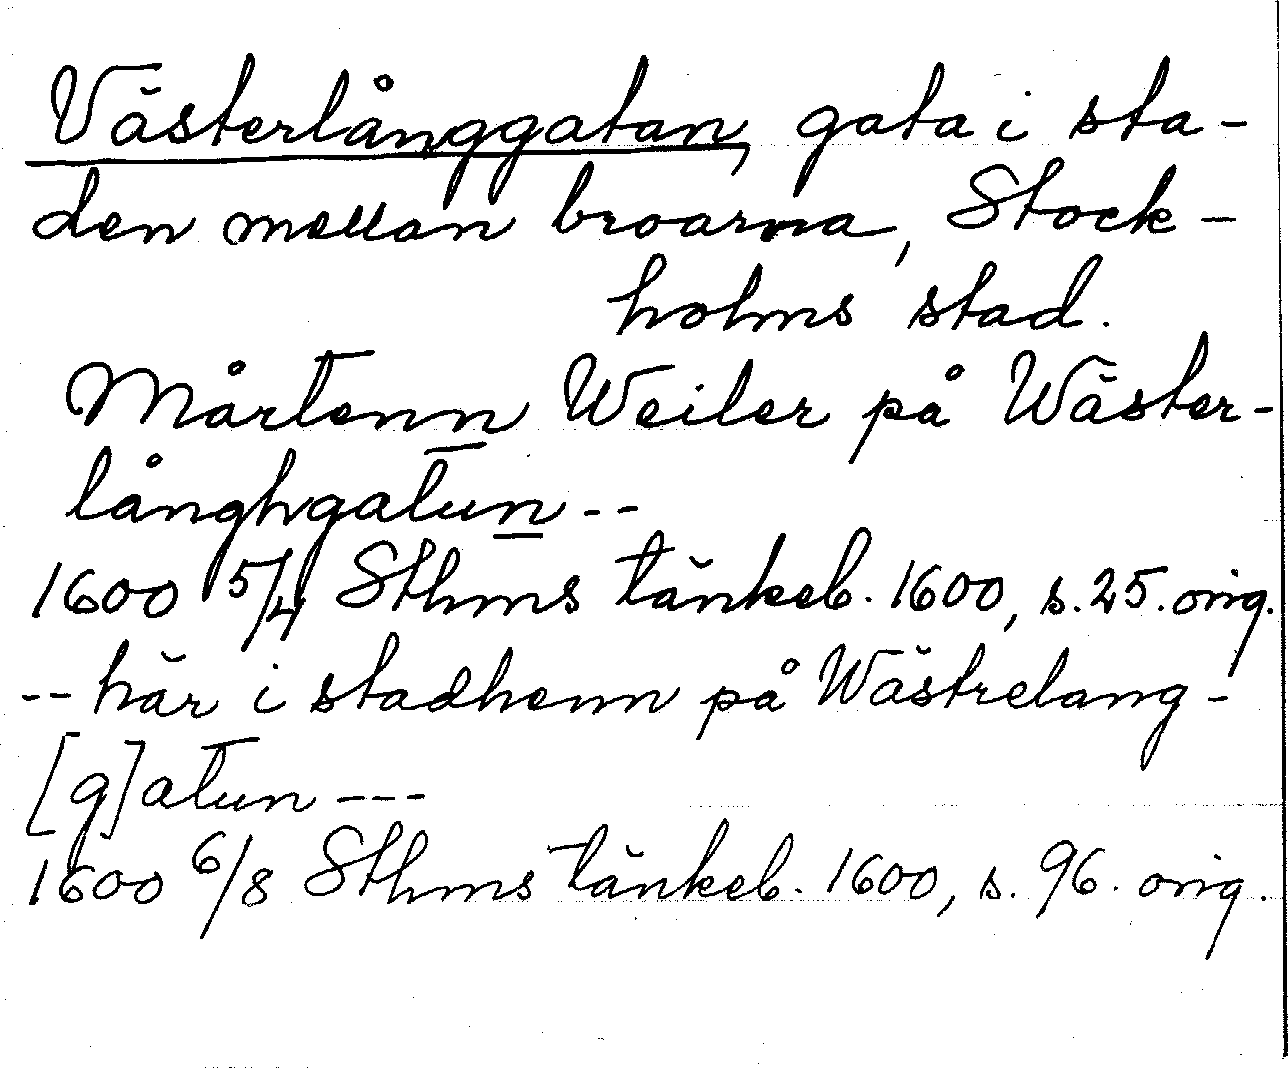 Västerlånggatan, gata i sta-
den mellan broarna, Stock-
holms stad.
Mårtenn Weiler på Wäster-
långhgatun --
1600 5/4 Sthms tänkeb. 1600, s. 25. orig.
-- här i stadhenn på Wästrelang-
[g]atun ---
1600 6/8 Sthms tänkeb. 1600, s. 96. orig.